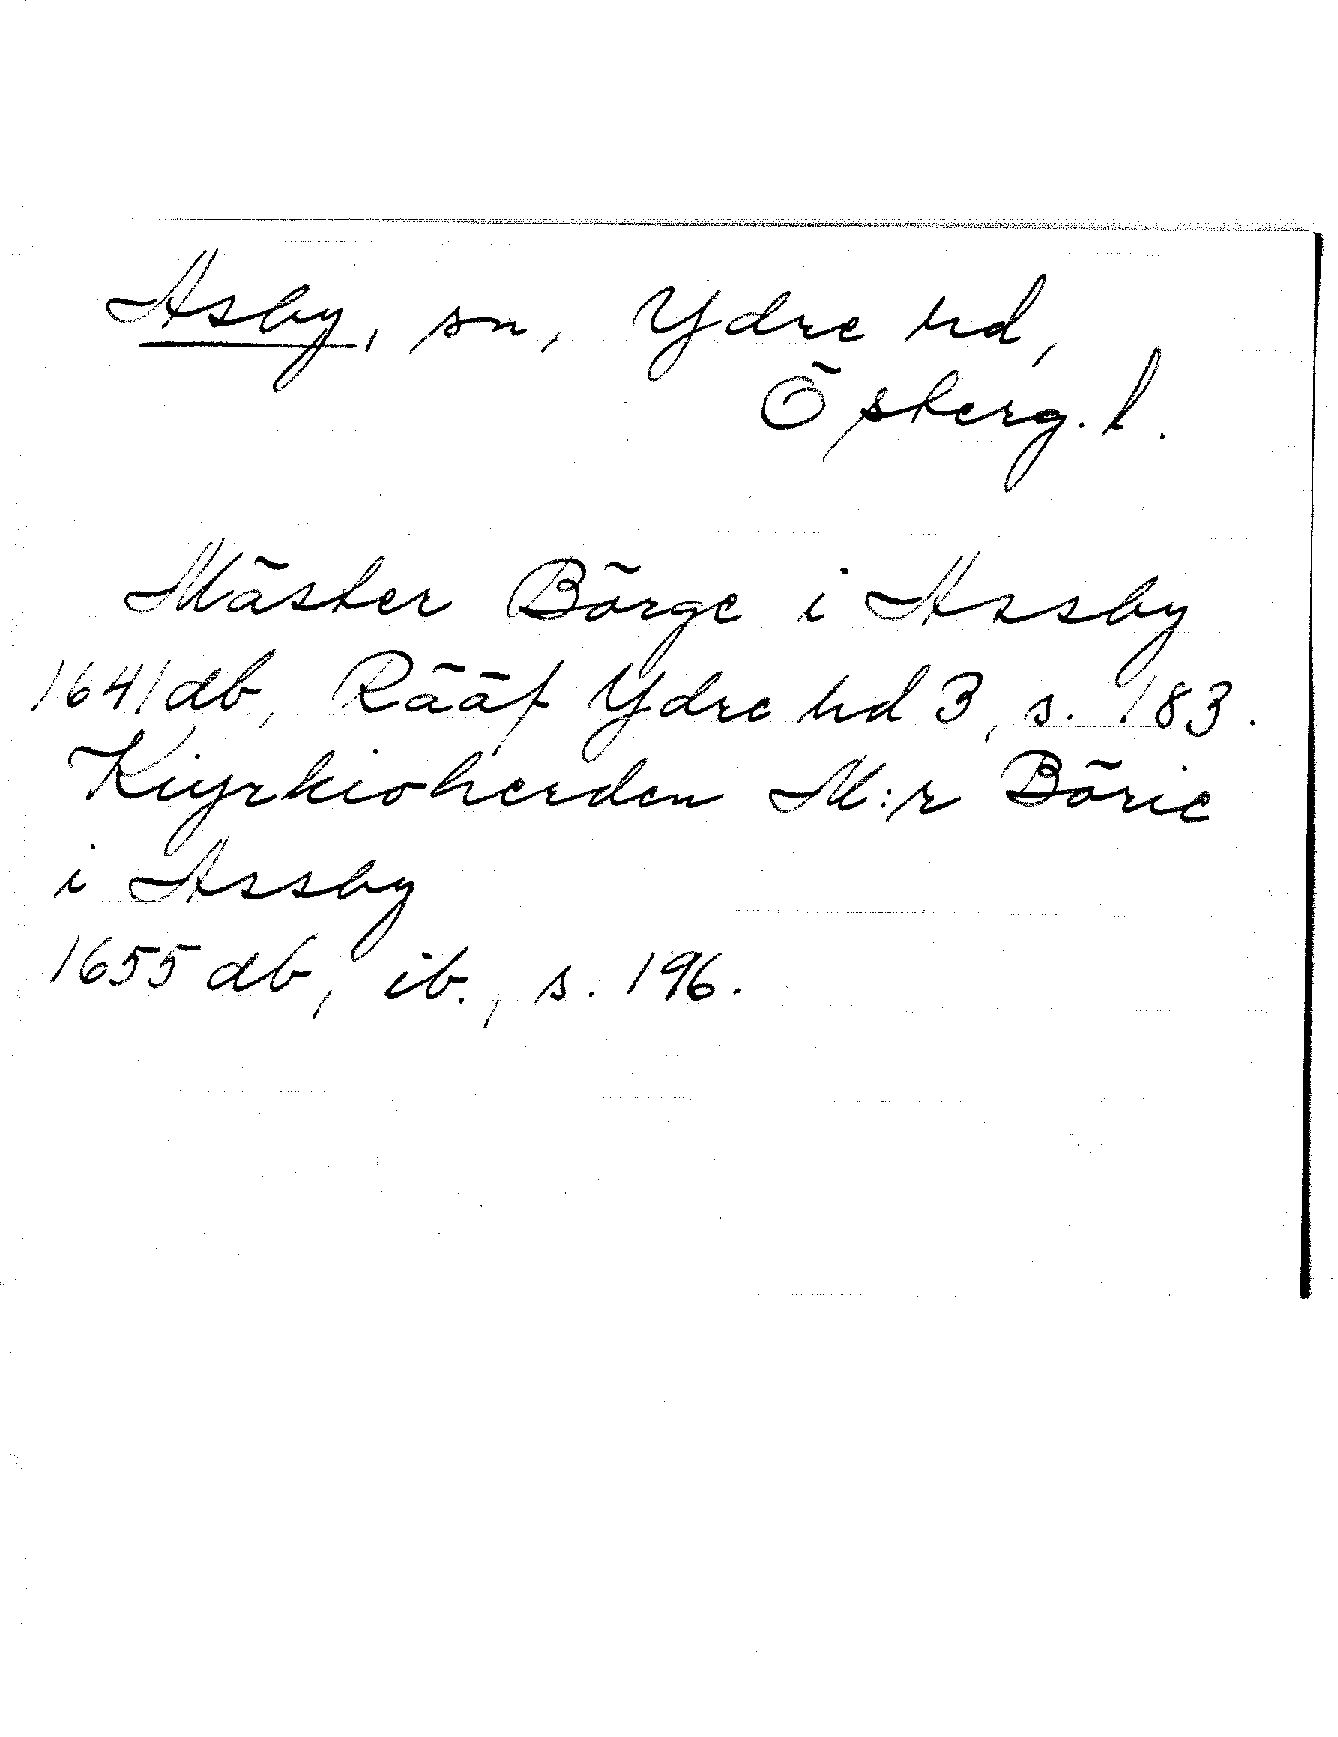 Asby, sn, Ydre hd,
Österg. l.
Mäster Börge i Assby
1641 db, Rääf Ydre hd 3, s. 183.
Kiyrkioherden M:r Börie
i Assby
1655 db, ib., s. 196.